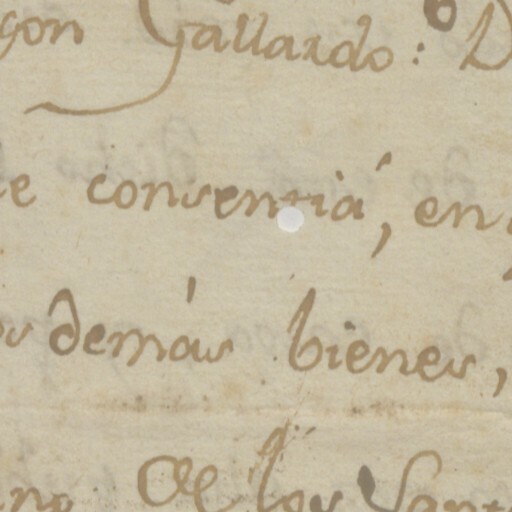 gon Gallardo: D
e consentia, en
os demás bienes,
de los Sant